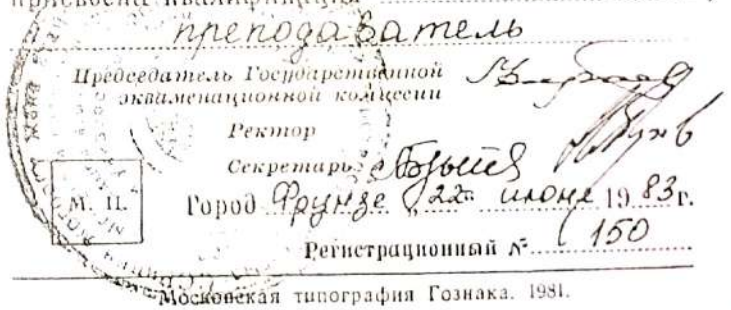 присвоена квалификация
преподаватель
Председатель Государственной
экзаменационной комиссии
Ректор
Секретарь
М. П.
Город Фрунзе „22“ июня 1983г.
Регистрационный № 150
Московская типография Гознака. 1981.